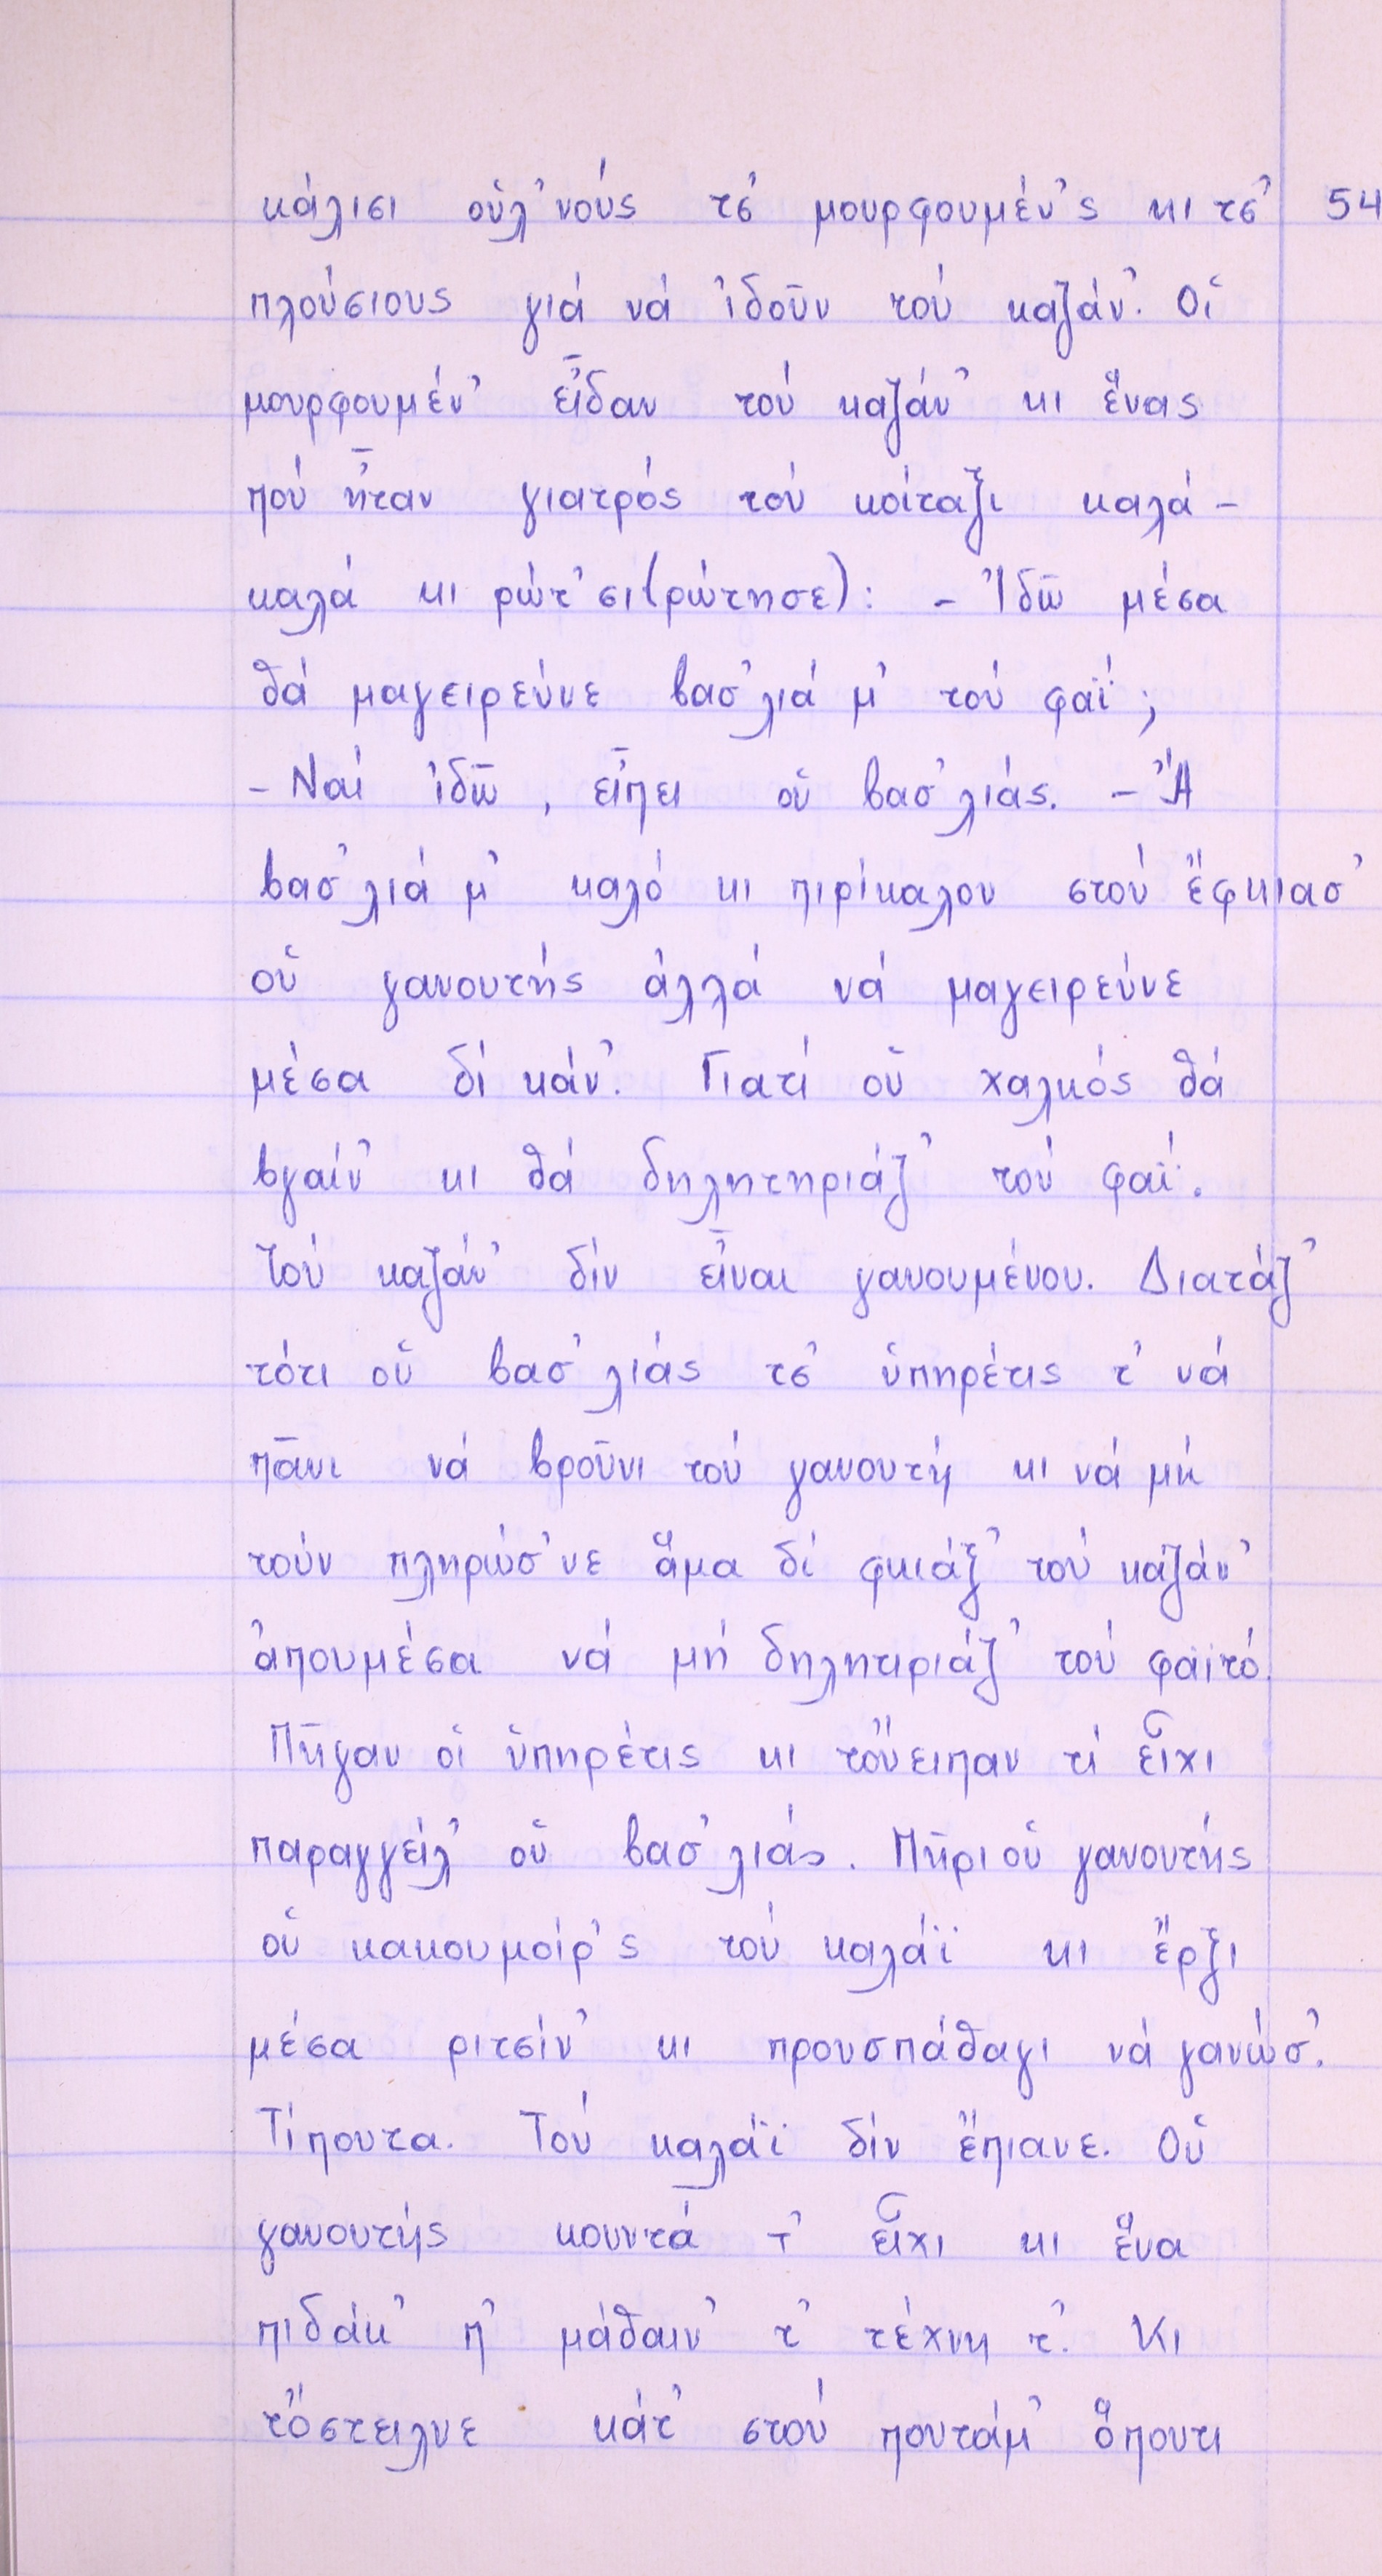 κάλισι οὑλ'νούς τσ' μουρφουμέν'ς κι τσ' 54
πλούσιους γιά νά ἰδοῦν τού καζάν'. Οἱ
μουρφουμέν' εἶδαν τού καζάν' κι ἕνας
πού ἦταν γιατρός τού κοίταξι καλά-
καλά κι ρώτ'σι (ρώτησε): - Ἰδῶ μέσα
θά μαγειρεύνε βασ'λιά μ' τού φαΐ;
- Ναί ἰδῶ, εἶπει οὑ βασ'λιάς. - Ἄ
βασ'λιά μ' καλό κι πιρίκαλου στού ἔφκιασ'
οὑ γανουτής ἀλλά νά μαγειρεύνε
μέσα δί κάν'. Γιατί οὑ χαλκός θά
βγαίν' κι θά δηλητηριάζ' τού φαΐ.
Τού καζάν' δίν εἶναι γανουμένου. Διατάζ'
τότι οὑ βασ'λιάς τσ' ὑπηρέτις τ' νά
πᾶνι νά βροῦνι τού γανουτή κι νά μή
τούν πληρώσ'νε ἅμα δί φκιάξ' τού καζάν'
ἀπουμέσα νά μή δηλητιριάζ' τού φαϊτό.
Πῆγαν οἱ ὑπηρέτις κι τοὔειπαν τί εἶχι
παραγγείλ' οὑ βασ'λιάς. Πῆρι οὑ γανουτής
οὑ κακουμοίρ'ς τού καλάϊ κι ἔρξι
μέσα ριτσίν' κι προυσπάθαγι νά γανώσ'.
Τίπουτα. Τού καλάϊ δίν ἔπιανε. Οὑ
γανουτής κουντά τ' εἶχι κι ἕνα
πιδάκ' π' μάθαιν' τ' τέχνη τ'. Κι
τὄστειλνε κάτ' στού πουτάμ' ὅπουτι